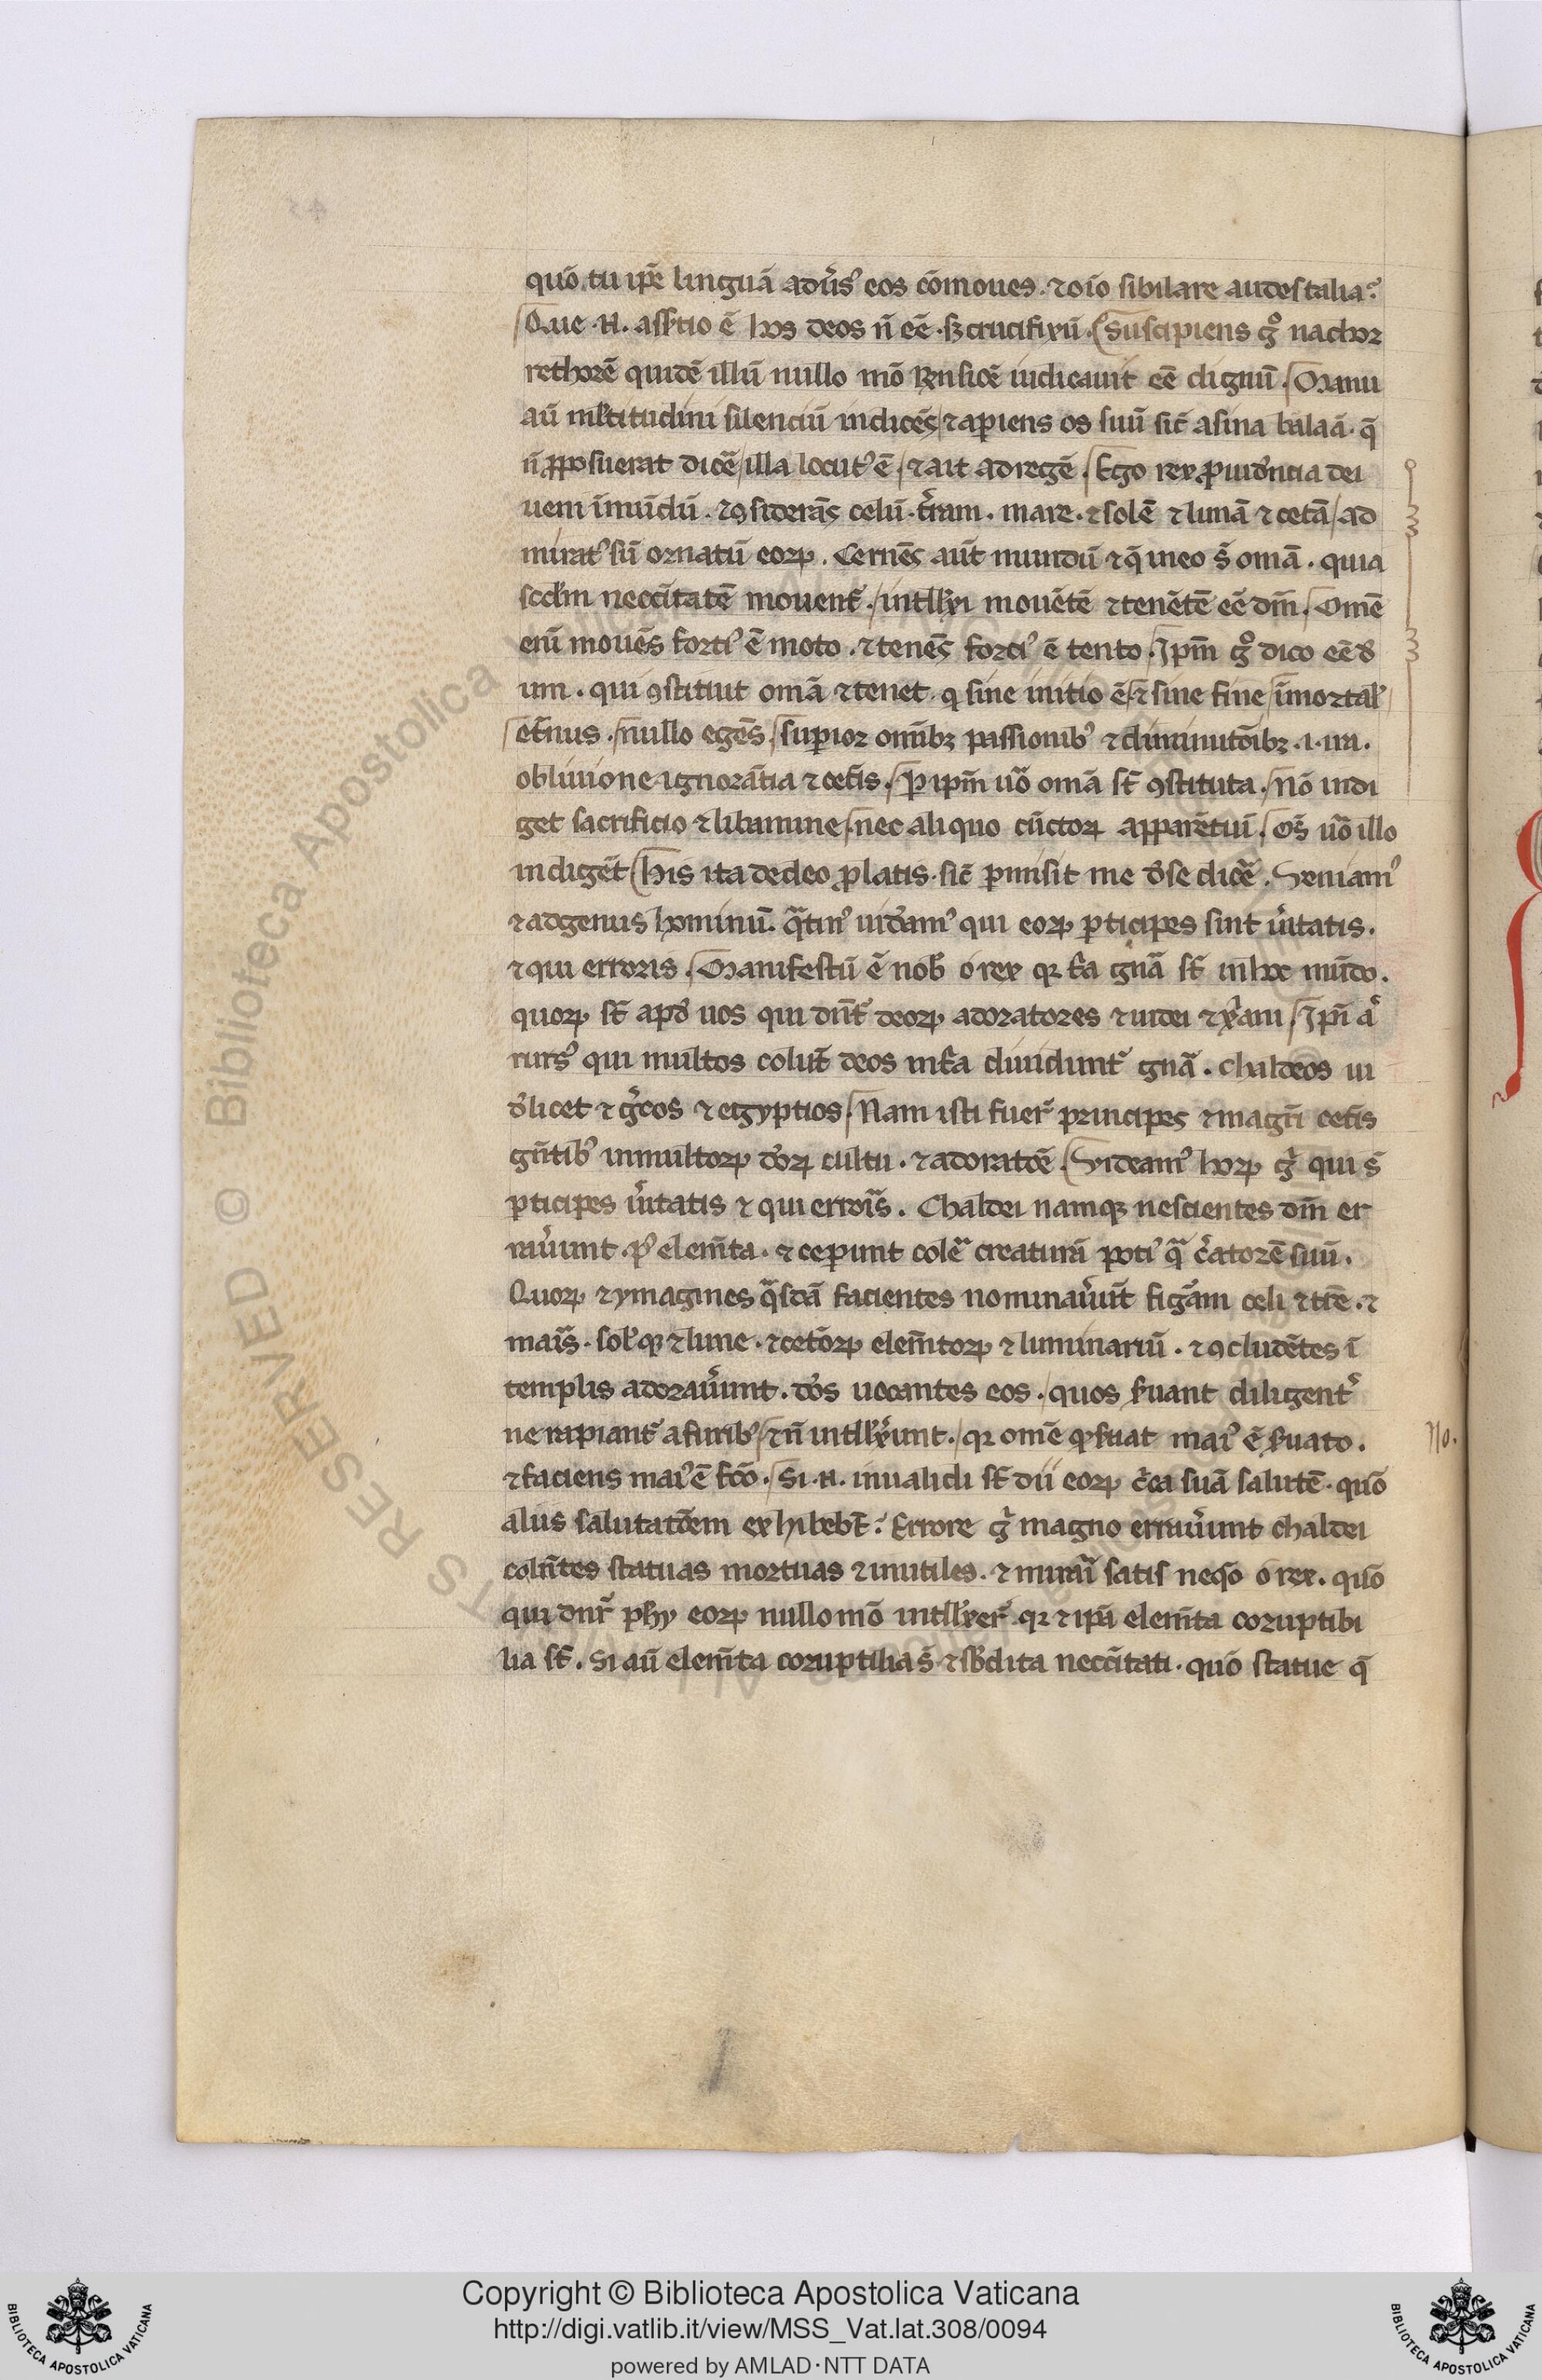 quō tu ip̄e linguā adūsꝰ eos cōmoues. ⁊ oīo sibilare audes talia?
Que .n. assertio ē hos deos n̄ eē. sꝫ crucifixū. Suscipiens gͦ nachor
rethorē quidē illū nullo mō rn̄sicē iudicauit eē dignū. Manu
aū ml̄titudini silenciū indicēs ⁊ aꝑiens os suū sic̄ asina balaā. q̄
n̄ ꝓposuerat dicē illa locutꝰ ē. ⁊ ait ad regē. Ego rex ꝓuidētia dei
ueni ī mūdū. ⁊ ꝯsiderās celū. t̄ram. mare. ⁊ solē ⁊ lunā ⁊ cetā ad
miratꝰ sū ornatū eoꝝ. Cernēs aūt mundū ⁊ q̄ in eo s̄ omā. quia
scd̄m neccitatē mouent̄. intll̄xi mouētē ⁊ tenētē eē dm̄. Omē
eni mouēs fortiꝰ ē moto. ⁊ tenēs fortiꝰ ē tento. Ip̄m gͦ dico eē d̄
um. qui ꝯstituit omā ⁊ tenet. q sine initio ē ⁊ sine fine īmortal̄
et̄nus. nullo egēs. suꝑior omībꝫ passionibꝰ ⁊ diminutōibꝫ .i. ira.
obliuione ignorātia ⁊ cet̄is. Ꝑ ip̄m uō omā st̄ ꝯstituta. Nō indi
get sacrificio ⁊ libamine. nec aliquo cūctoꝝ apparētiū. Oēs uō illo
indigēt His ita de deo ꝓlatis. sic̄ ꝑmisit me d̄ se dicē. Ueniamꝰ
⁊ ad genus hominū. qͣtinꝰ uid̄amꝰ qui eoꝝ ꝑticipes sint ūitatis.
⁊ qui erroris. Manifestū ē nob̄ o rex qꝫ t̄a gn̄a st̄ in hoc mūdo.
quoꝝ st̄ apd̄ uos qui dn̄t̄ deoꝝ adoratores ⁊ iudei ⁊ xp̄ani Ip̄i aͥ
rursꝰ qui multos colūt deos in t̄a diuidunt̄ gn̄a. Chaldeos ui
d̄licet ⁊ gͥcos ⁊ egyptios. Nam isti fuer̄ principes ⁊ magr̄i cet̄is
gn̄tibꝰ in multoꝝ d̄oꝝ cultu. ⁊ adoratōe. Uideamꝰ hoꝝ gͥ qui s̄
ꝑticipes ūitatis ⁊ qui erroris. Chaldei namqꝫ nescientes dm̄ er
rauerunt pꝰ elem̄ta. ⁊ ceperunt colē creaturā potiꝰ qͣ c̄atorē suū.
Quoꝝ ⁊ ymagines qͣsdā facientes nominauerūt figͣam celi ⁊ tr̄e. ⁊
maris. solisqꝫ ⁊ lune. ⁊ cet̄oꝝ elem̄toꝝ ⁊ luminariū. ⁊ ꝯcludētes ī
templis adorauerunt. d̄os uocantes eos. quos seruant diligent̄
ne rapiant̄ a furibꝰ ⁊ n̄ intll̄x̄unt. qꝫ omē qd̄ seruat maiꝰ ē seruato.
⁊ faciens maiꝰ ē fc̄o. Si .n. inualidi st̄ dii eoꝝ cͥca suā salutē. quō
aliis salutatōem exhibebt̄? Errore gͥ magno errauerunt chaldei
coln̄tes statuas mortuas ⁊ inutiles. ⁊ mirari satis neqͦo o rex. quō
qui dnr̄ phy eoꝝ nullo mō intll̄xer̄. qꝫ ⁊ ip̄a elem̄ta coruptibi
lia st̄. Si aū elem̄ta coruptilia s̄ ⁊ sbd̄ita neccitati. quō statue q̄
No.
Copyright © Biblioteca Apostolica Vaticana
http://digi.vatlib.it/view/MSS_Vat.lat.308/0094
powered by AMLAD·NTT DATA